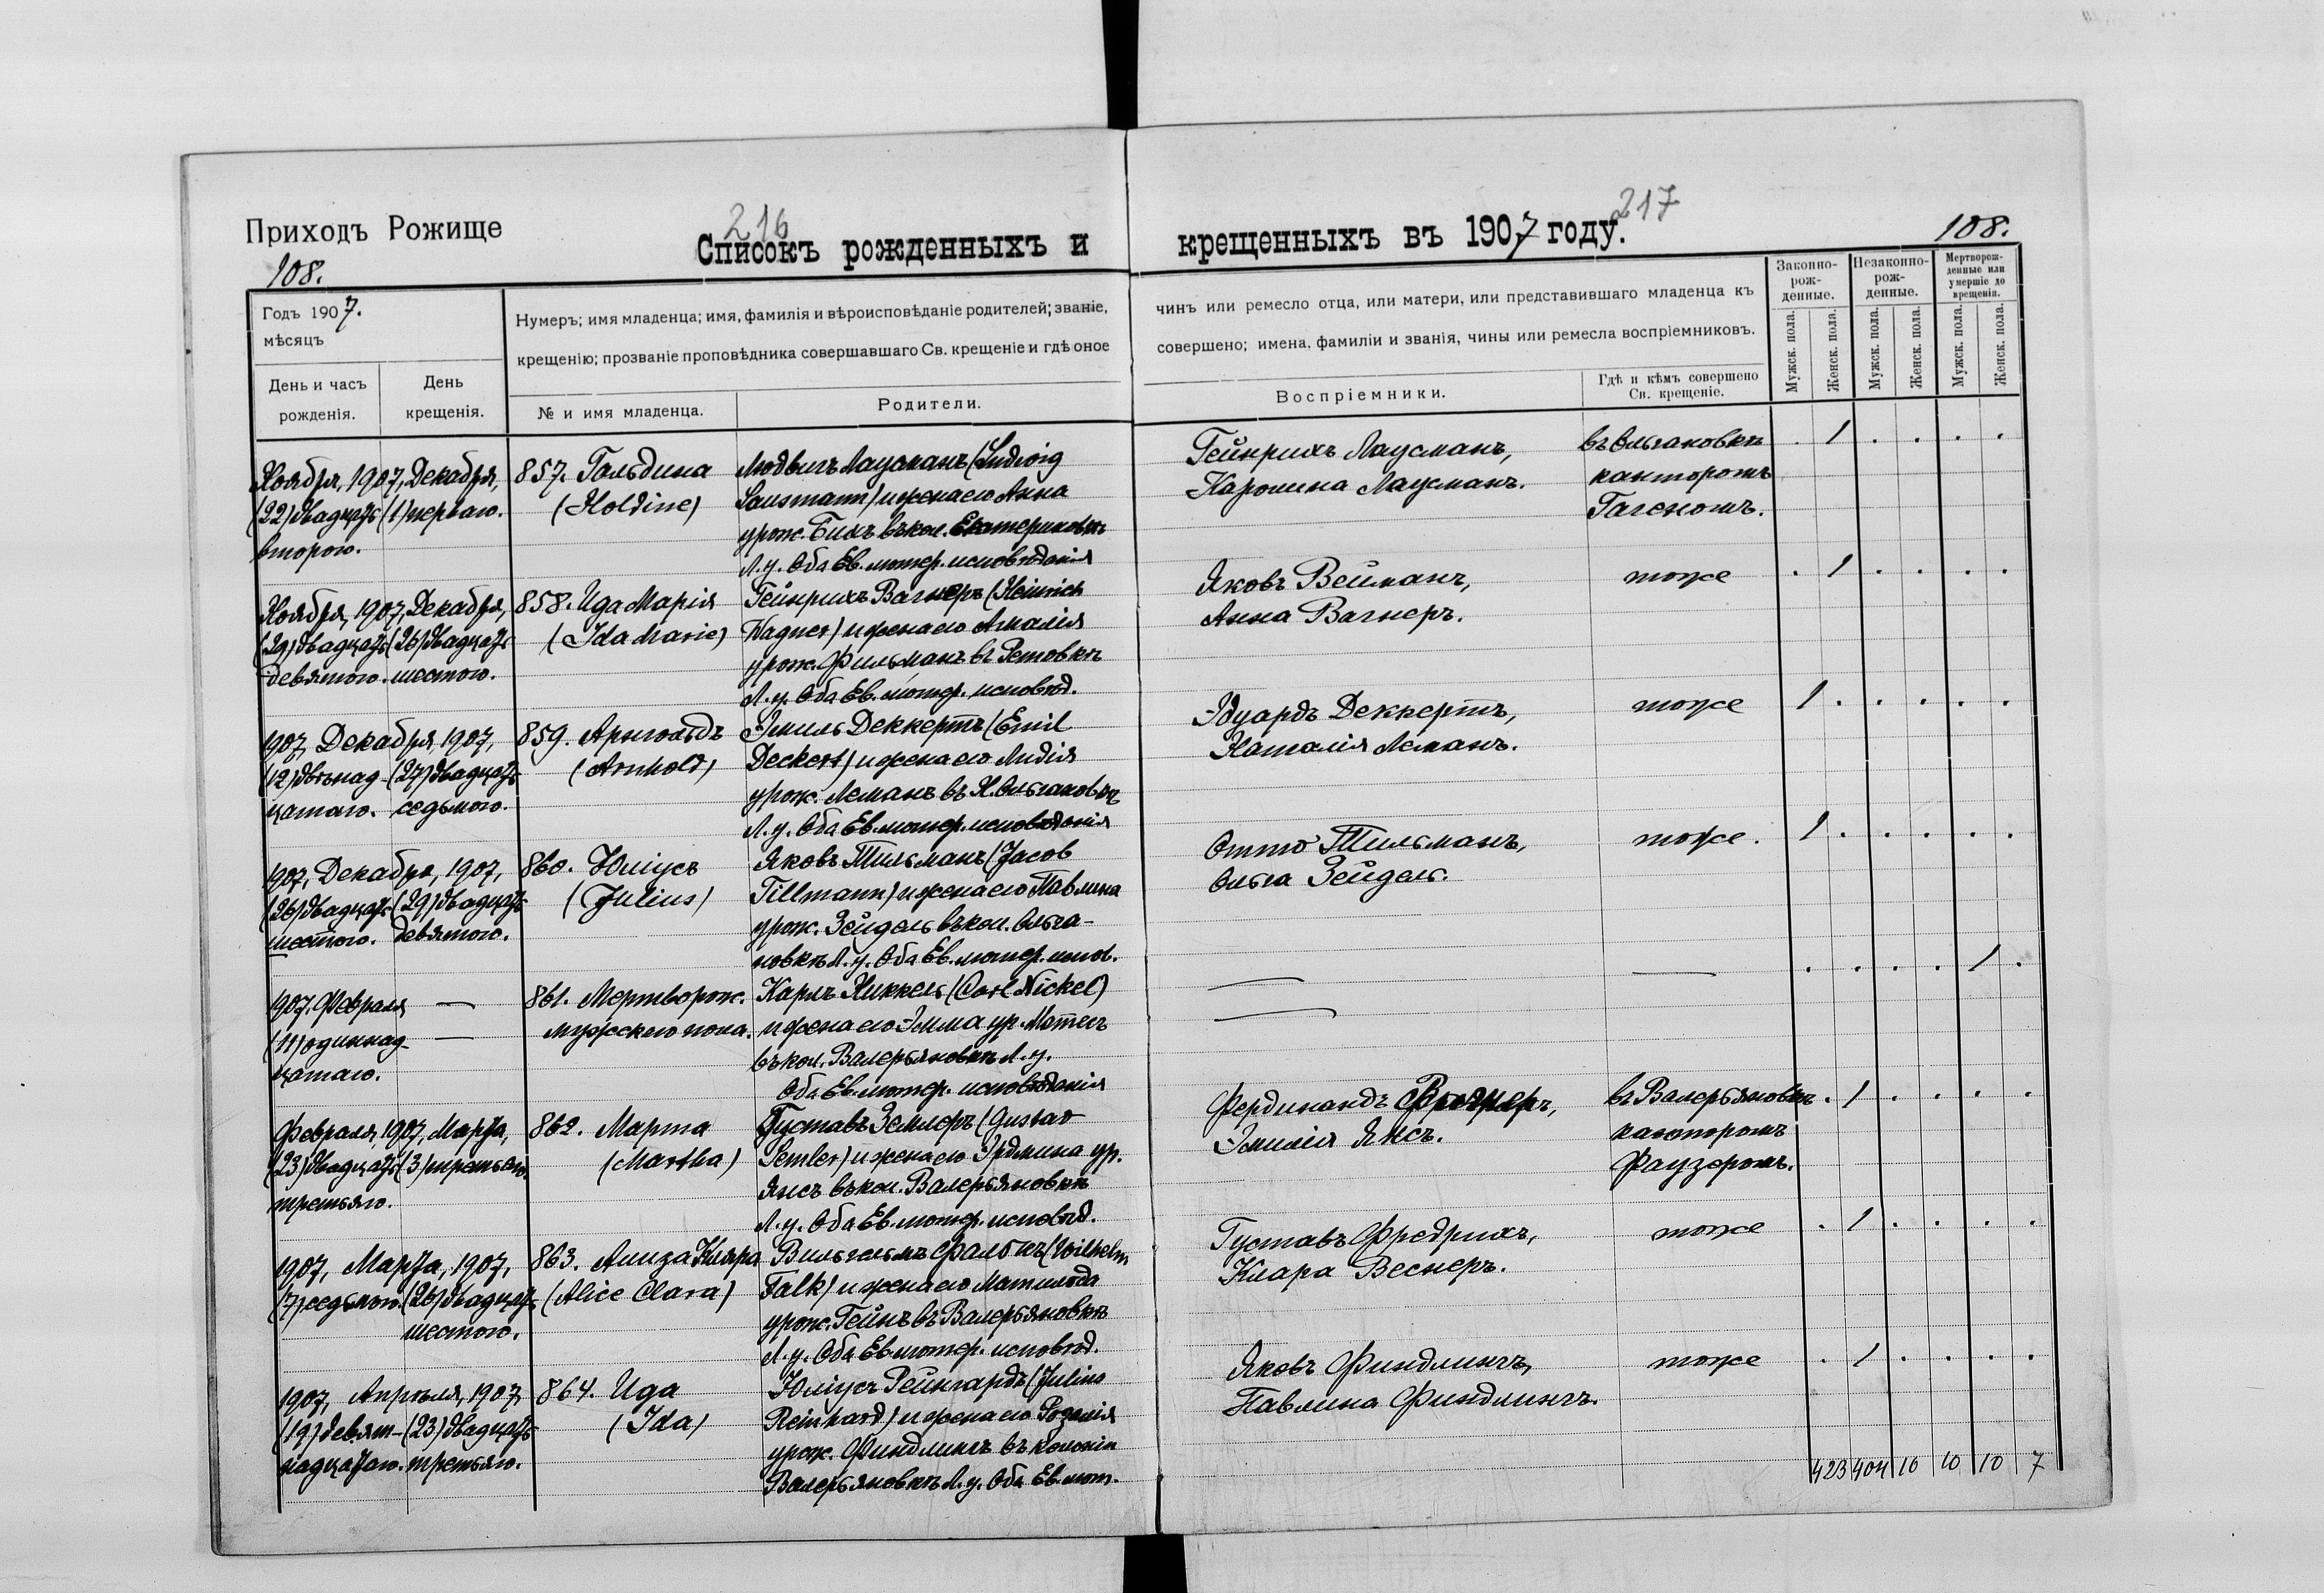 Приходъ Рожище
216
Списокъ рожденныхъ и
крещенныхъ въ 1907 году.
217
108.
108.
Годъ 1907.
мѣсяцъ
День и часъ рожденія.
День крещенія.
Нумеръ; имя младенца; имя, фамилія и вѣроисповѣданіе родителей; званіе,
крещенію; прозваніе проповѣдника совершавшаго Св. крещеніе и гдѣ оное
№ и имя младенца.
Родители.
чинъ или ремесло отца, или матери, или представившаго младенца къ
совершено; имена, фамиліи и званія, чины или ремесла воспріемниковъ.
Воспріемники.
Гдѣ и кѣмъ совершено
Св. крещеніе.
Законно-
рож-
денные.
Незаконно-
рож-
денные.
Мертворож-
денные или
умершіе до
крещенія.
Мужск. пола.
Женск. пола.
Мужск. пола.
Женск. пола.
Мужск. пола.
Женск. пола.
Ноября, 1907, Декабря,
(22) двадцать (1) перваго.
второго.
857. Гольдина
(Holdine)
Людвигъ Лаусманъ (Ludwig
Lausmann) и жена его Анна
урож. Бихъ въ кол. Екатериновкѣ
Л. у. Оба Ев. лютер. исповѣданія
Гейнрихъ Лаусманъ,
Каролина Лаусманъ.
въ Ольгановкѣ
канторомъ
Гагеномъ.
. 1 . . . .
Ноября, 1907, Декабря,
(29) двадцать (26) двадцать
девятого. шестого.
858. Ида Марія
(Ida Marie)
Гейнрихъ Вагнеръ (Heinrich
Wagner) и жена его Амалія
урож. Фильманъ въ
Л. у. Оба Ев. лютер. исповѣд.
Яковъ Вейманъ,
Анна Вагнеръ.
тоже
. 1 . . . .
1907, Декабря, 1907,
(12) двѣнад- (27) двадцать
цатаго. седьмого.
859. Арнгольдъ
(Arnhold)
Эмиль Деккертъ (Emil
Deckert) и жена его Лидія
урож. Леманъ въ Н. Ольгановкѣ
Л. у. Оба Ев. лютер. исповѣданія
Эдуардъ Деккертъ,
Наталія Леманъ.
тоже
1 . . . . .
1907, Декабря, 1907,
(26) двадцать (29) двадцать
шестого. девятого.
860. Юліусъ
(Julius)
Яковъ Тильманъ (Jacob
Tillmann) и жена его Павлина
урож. Зейдель въ кол. Ольга-
новкѣ Л. у. Оба Ев. лютер. испов.
Отто Тильманъ,
Ольга Зейдель.
тоже.
1 . . . . .
1907. Февраля —
(11) одиннад- —
цатаго.
861. Мертворож.
мужского пола.
Карлъ Никкель (Carl Nickel)
и жена его Эмма ур. Матесъ
въ кол. Валерьяновкѣ Л. у.
Оба Ев. лютер. исповѣданія
— —
—
. . . . 1 .
Февраля, 1907, Марта,
(23) двадцать (3) третьяго.
третьяго.
862. Марта
(Martha)
Густавъ Землеръ (Gustav
Semler) и жена его Эрдмина ур.
Янсъ въ кол. Валерьяновкѣ
Л. у. Оба Ев. лютер. исповѣд.
Фердинандъ
Эмилія Янсъ.
въ Валерьяновкѣ
канторомъ
Фаузеромъ.
. 1 . . . .
1907, Марта, 1907,
(7) седьмого. (26) двадцать
шестого.
863. Ализа Клара
(Alice Clara)
Вильгельмъ Фалькъ (Wilhelm
Falk) и жена его Матильда
урож. Гейнъ въ Валерьяновкѣ
Л. у. Оба Ев. лютер. исповѣд.
Густавъ Фредрихъ,
Клара Веснеръ.
тоже
. 1 . . . .
1907, Апрѣля, 1907,
(19) девят- (23) двадцать
надцатаго. третьяго.
864. Ида
(Ida)
Юліусъ Рейнгардъ (Julius
Reinhard) и жена его Розалія
урож. Финдлингъ въ колоніи
Валерьяновкѣ Л. у. Оба Ев. лют.
Яковъ Финдлингъ,
Павлина Финдлингъ.
тоже
. 1 . . . .
423 404 10 10 10 7